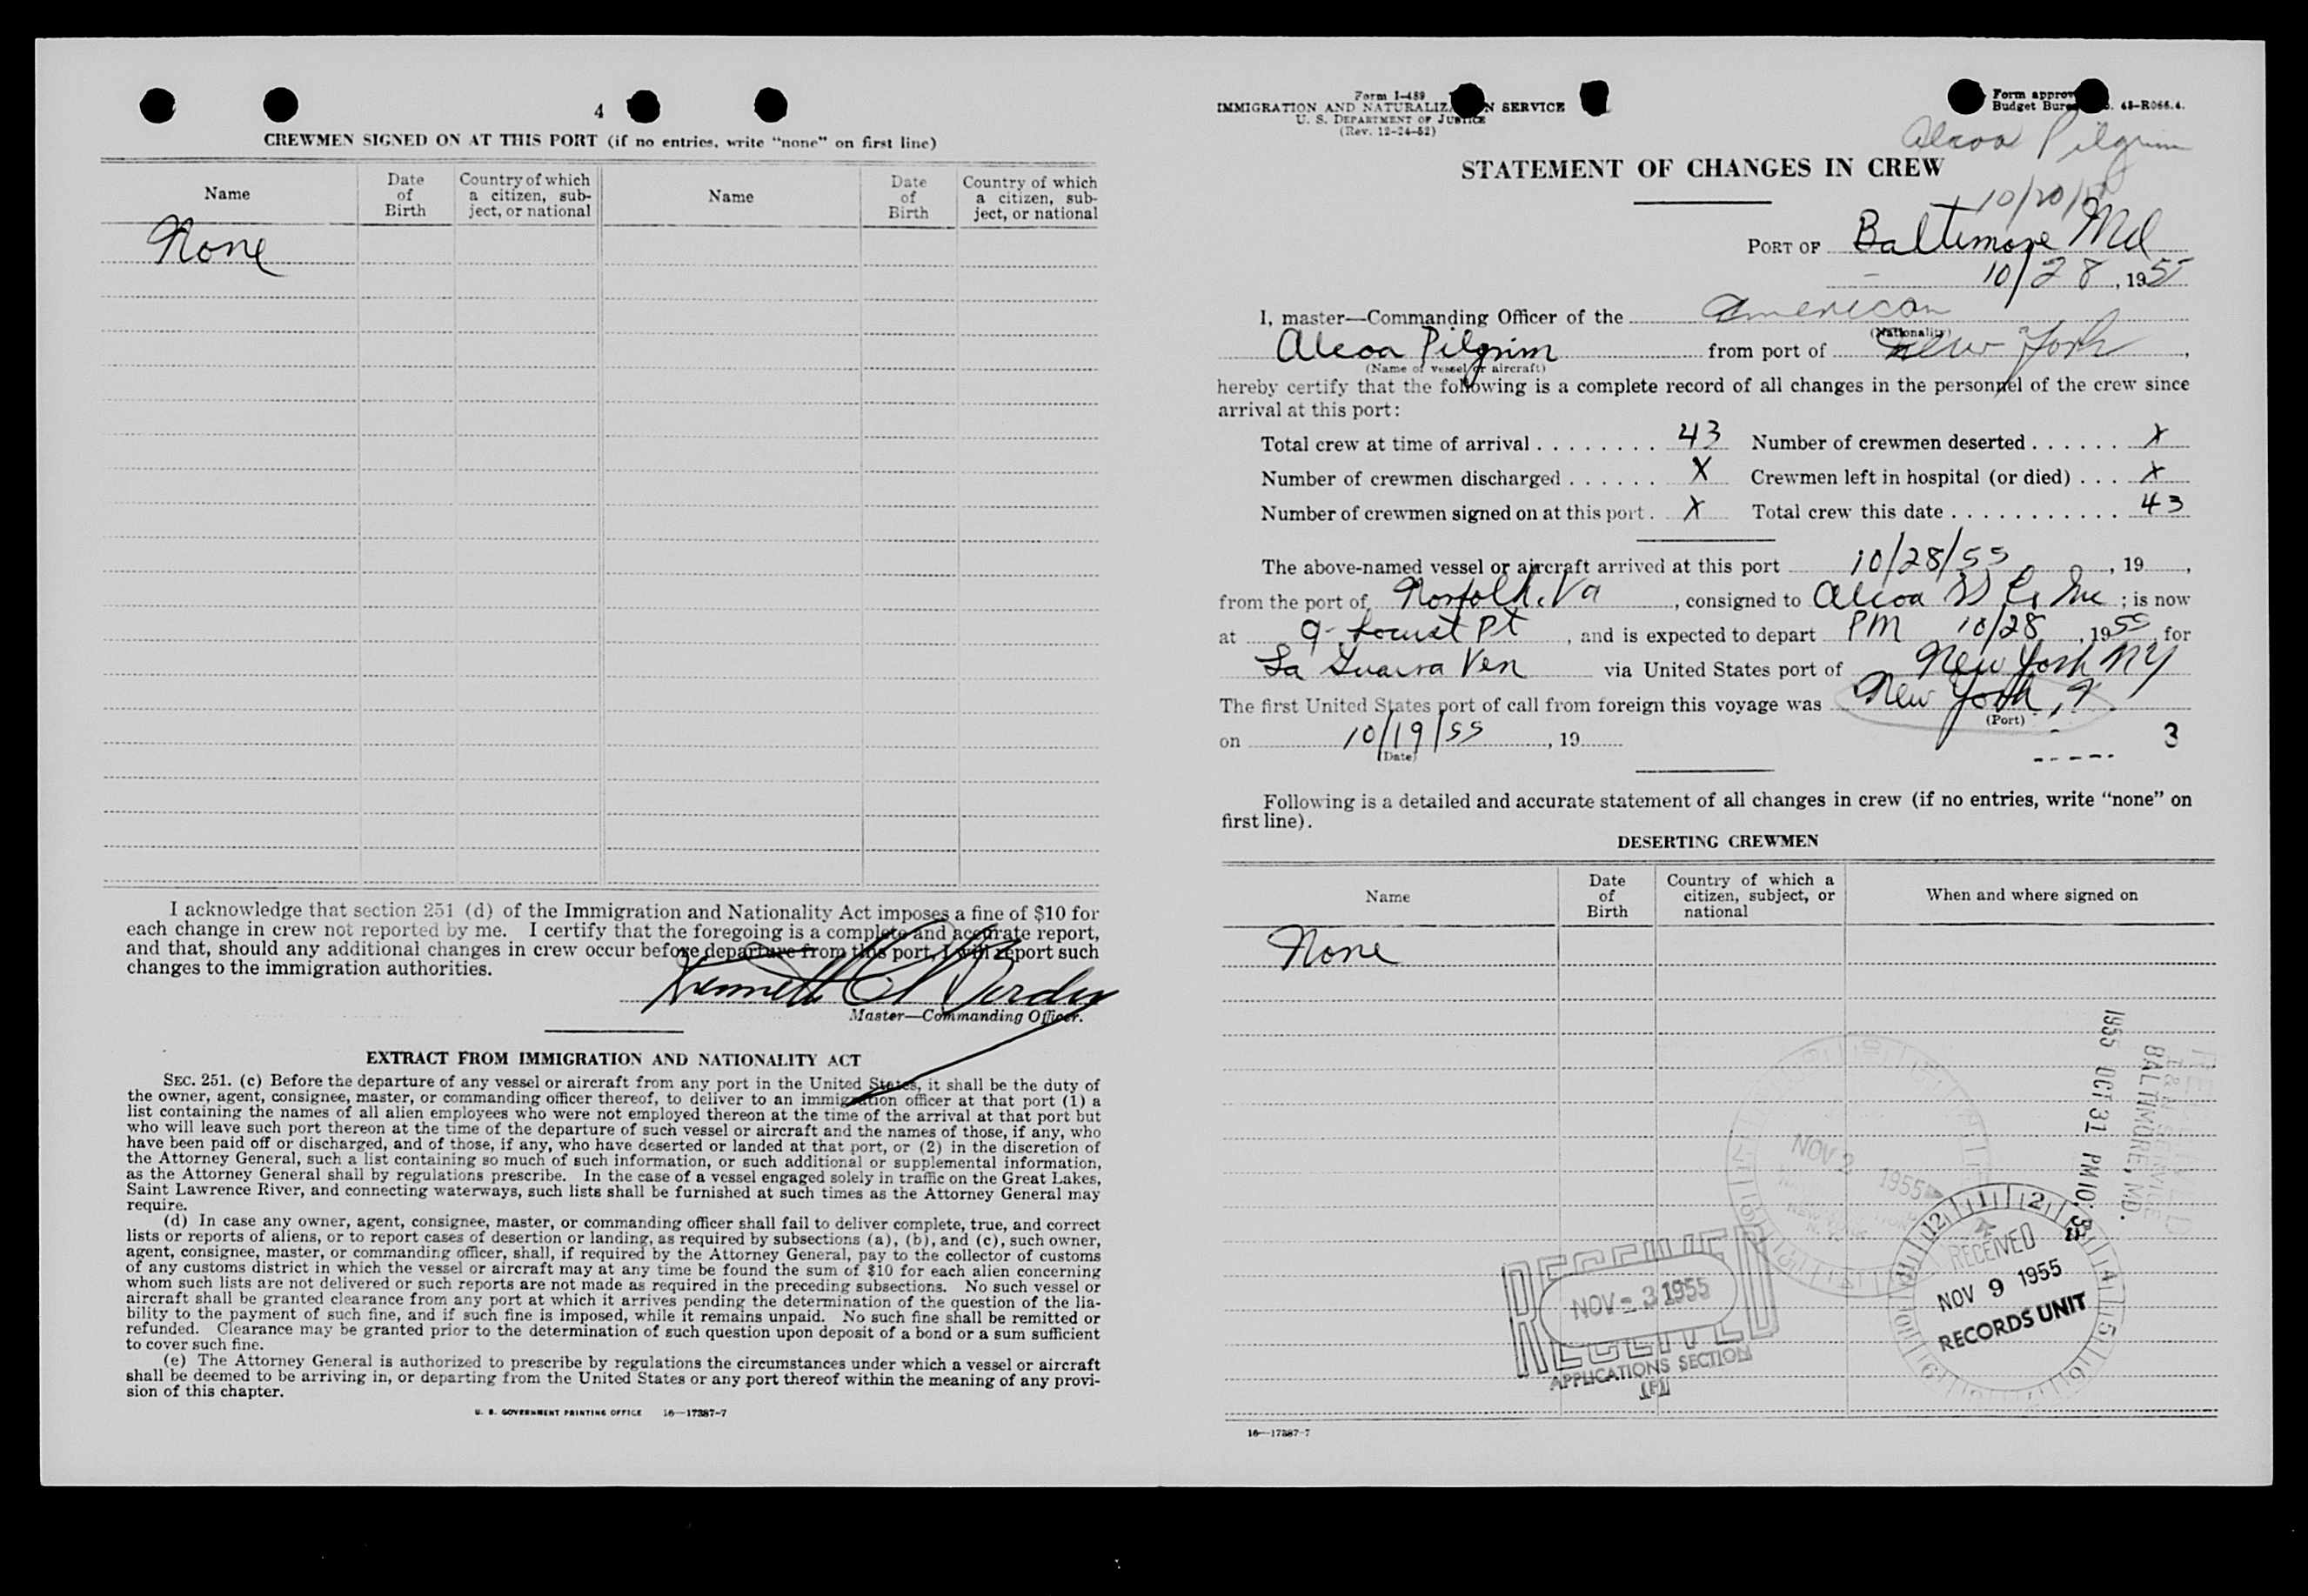 4
CREWMEN SIGNED ON AT THIS PORT (if no entries, write "none" on first line)
Name
Date of Birth
Country of which a citizen, subject, or national
Name
Date of Birth
Country of which a citizen, subject, or national
None
I acknowledge that section 251 (d) of the Immigration and Nationality Act imposes a fine of $10 for
each change in crew not reported by me. I certify that the foregoing is a complete and accurate report,
and that, should any additional changes in crew occur before departure from this port, I will report such
changes to the immigration authorities.
Kenneth
Master—Commanding Officer.
EXTRACT FROM IMMIGRATION AND NATIONALITY ACT
SEC. 251. (c) Before the departure of any vessel or aircraft from any port in the United States, it shall be the duty of
the owner, agent, consignee, master, or commanding officer thereof, to deliver to an immigration officer at that port (1) a
list containing the names of all alien employees who were not employed thereon at the time of the arrival at that port but
who will leave such port thereon at the time of the departure of such vessel or aircraft and the names of those, if any, who
have been paid off or discharged, and of those, if any, who have deserted or landed at that port, or (2) in the discretion of
the Attorney General, such a list containing so much of such information, or such additional or supplemental information,
as the Attorney General shall by regulations prescribe. In the case of a vessel engaged solely in traffic on the Great Lakes,
Saint Lawrence River, and connecting waterways, such lists shall be furnished at such times as the Attorney General may
require.
(d) In case any owner, agent, consignee, master, or commanding officer shall fail to deliver complete, true, and correct
lists or reports of aliens, or to report cases of desertion or landing, as required by subsections (a), (b), and (c), such owner,
agent, consignee, master, or commanding officer, shall, if required by the Attorney General, pay to the collector of customs
of any customs district in which the vessel or aircraft may at any time be found the sum of $10 for each alien concerning
whom such lists are not delivered or such reports are not made as required in the preceding subsections. No such vessel or
aircraft shall be granted clearance from any port at which it arrives pending the determination of the question of the lia-
bility to the payment of such fine, and if such fine is imposed, while it remains unpaid. No such fine shall be remitted or
refunded. Clearance may be granted prior to the determination of such question upon deposit of a bond or a sum sufficient
to cover such fine.
(e) The Attorney General is authorized to prescribe by regulations the circumstances under which a vessel or aircraft
shall be deemed to be arriving in, or departing from the United States or any port thereof within the meaning of any provi-
sion of this chapter.
U. S. GOVERNMENT PRINTING OFFICE 16—17387-7
Form I-489
IMMIGRATION AND NATURALIZ N SERVICE
U. S. DEPARTMENT OF JUSTICE
(Rev. 12-24-52)
Form approv
Budget Bur . 43-R066.4.
Alcoa Pilgrim
STATEMENT OF CHANGES IN CREW
10/20/
PORT OF Baltimore Md
10/28, 1955
I, master—Commanding Officer of the American
(Nationality)
Alcoa Pilgrim from port of New York,
(Name of vessel or aircraft)
hereby certify that the following is a complete record of all changes in the personnel of the crew since
arrival at this port:
Total crew at time of arrival . . . . . . . . 43 Number of crewmen deserted . . . . . . X
Number of crewmen discharged . . . . . . X Crewmen left in hospital (or died) . . . X
Number of crewmen signed on at this port . X Total crew this date . . . . . . . . . . . . 43
The above-named vessel or aircraft arrived at this port 10/28/55, 19 ,
from the port of Norfolk, Va, consigned to Alcoa SS Co Inc; is now
at 9- Locust Pt, and is expected to depart PM 10/28, 1955, for
La Guaira Ven via United States port of New York NY
The first United States port of call from foreign this voyage was New York,
(Port)
on 10/19/55, 19
(Date)
3
Following is a detailed and accurate statement of all changes in crew (if no entries, write "none" on
first line).
DESERTING CREWMEN
Name
Date of Birth
Country of which a citizen, subject, or national
When and where signed on
None
BALTIMORE, MD.
1955 OCT 31 PM 10:
NOV 2 1955
RECEIVED
NOV - 3 1955
APPLICATIONS SECTION
RECEIVED
NOV 9 1955
RECORDS UNIT
16—17387-7